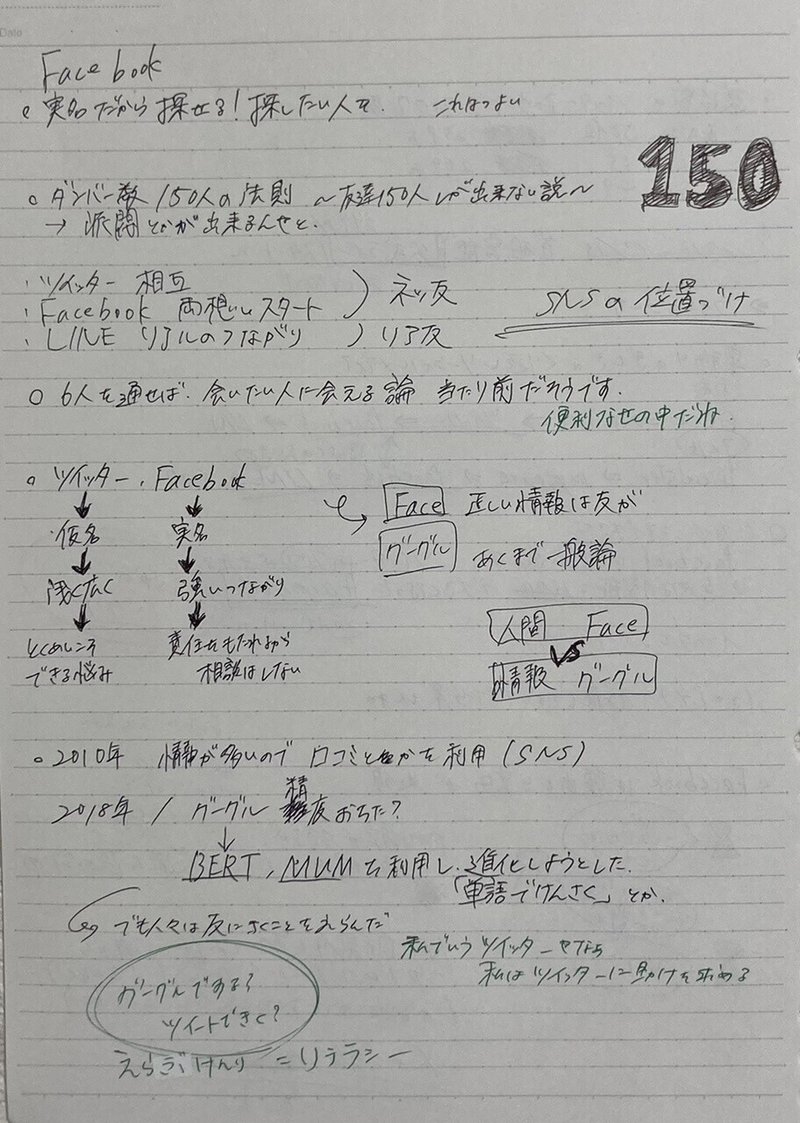 Date
Facebook
○ 実名だから探せる！探したい人を. これはつよい
150
○ ダンバー数 150人の法則 〜友達150人しか出来ない説〜
→ 派閥とかが出来るんやと.
・ツイッター 相互
・Facebook 両想いスタート ) ネッ友
・LINE リアルのつながり ) リア友
SNSの位置づけ
○ 6人を通せば. 会いたい人に会える論 当たり前だそうです.
便利なせの中だね.
○ ツイッター. Facebook
↓ ↓
仮名 実名
↓ ↓
浅く広く 強いつながり
↓ ↓
とくめいこそ 責任をもたれるから
できる悩み 相談はしない
Face 正しい情報は友が
グーグル あくまで一般論
人間 Face
VS
情報 グーグル
○ 2010年 情報が多いので 口コミとかを利用(SNS)
2018年 / グーグル 精度おちた?
↓
BERT, MUMを利用し. 進化しようとした.
「単語でけんさく」とか.
でも人々は友にきくことをえらんだ
私でいうツイッターやなぁ
私はツイッターに助けを求める
グーグルですか?
ツイートできく?
えらぶけんり = リテラシー